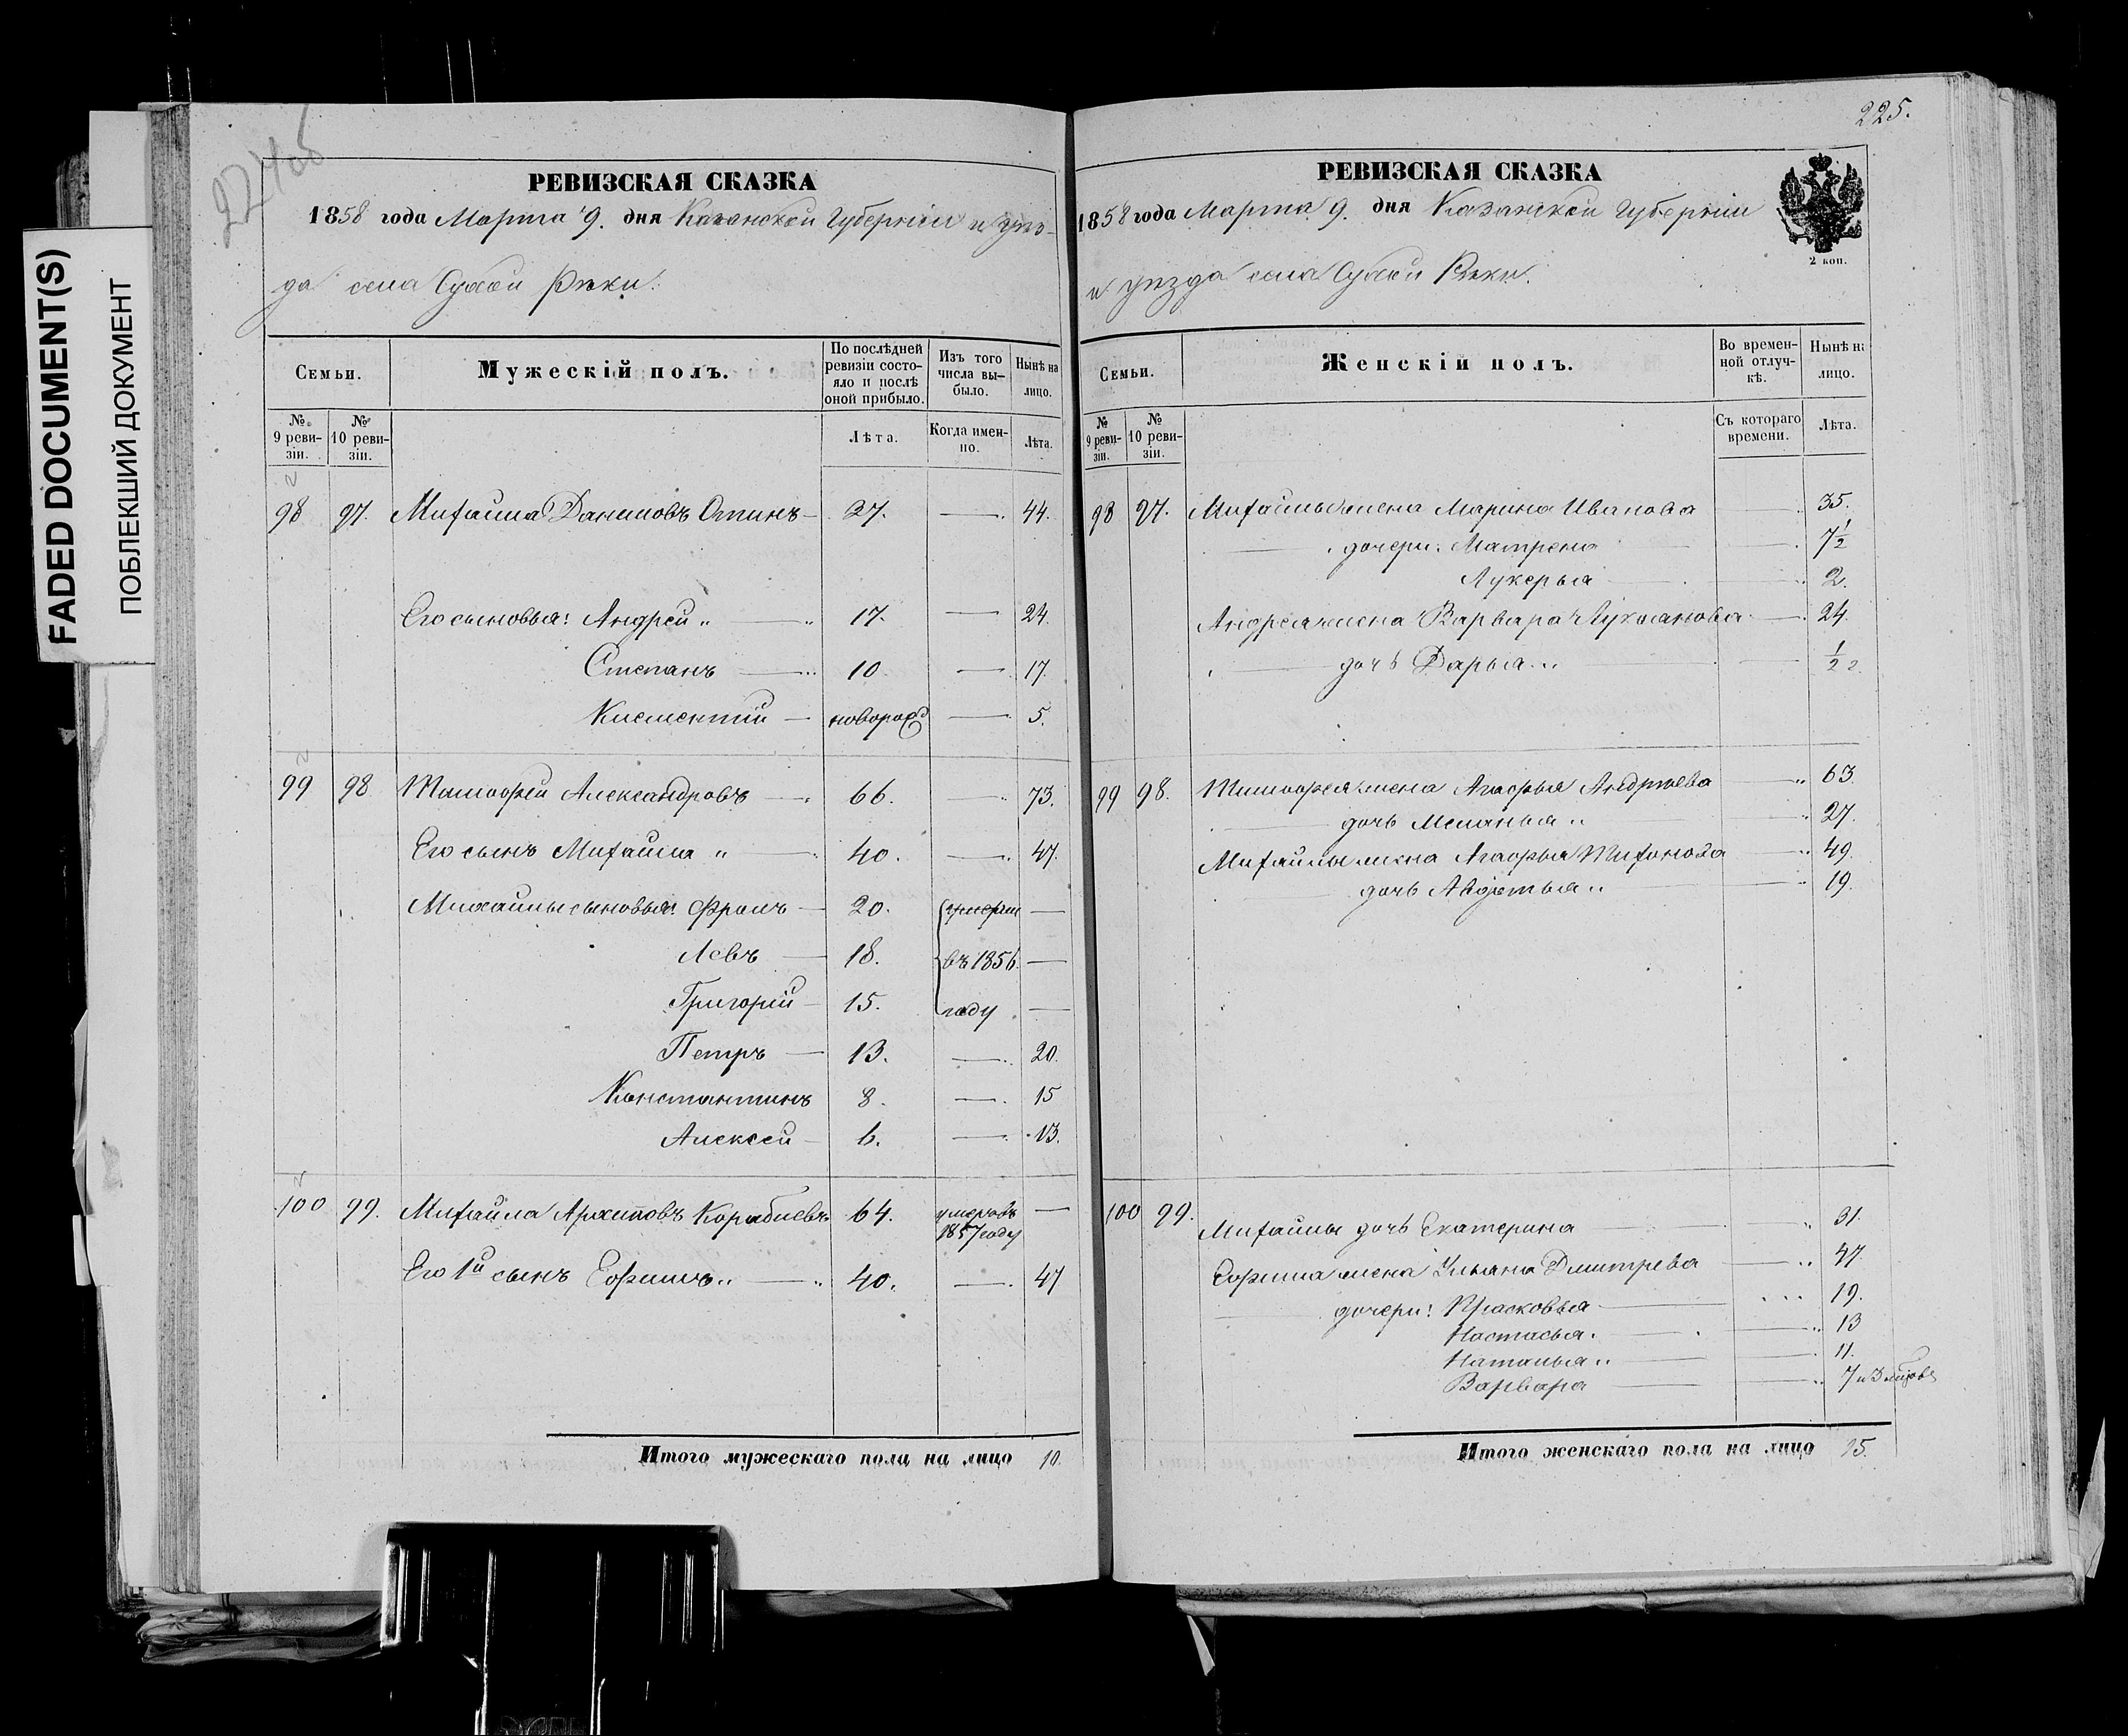 FADED DOCUMENT(S)
ПОБЛЕКШИЙ ДОКУМЕНТ
224об
РЕВИЗСКАЯ СКАЗКА
1858 года Марта 9. дня Казанской Губернiи и уѣз-
да села Сухой Рѣки.
Семьи.
Мужескiй полъ.
По послѣдней ревизiи состояло и послѣ оной прибыло.
Изъ того числа вы-было.
Нынѣ на лицо.
№ 9 реви-зiи.
№ 10 реви-зiи.
Лѣта.
Когда имен-но.
Лѣта.
98 97. Михайла Даниловъ 37. — 44.
Его сыновья: Андрей 17. — 24.
Степанъ — 10 — 17.
Климентiй — новорожд — 5.
99 98 Тимофей Александровъ — 66. — 73.
Его сынъ Михайла — 40. — 47.
Михайлы сыновья: Фролъ — 20. умерли —
Левъ — 18. въ 1856 —
Григорiй — 15. году —
Петръ — 13. — 20.
Константинъ 8. — 15
Алексей — 6. — 13.
100 99. Михайла Архиповъ 64. умеръ въ 1857 году —
Его 1й сынъ Ефимъ — 40. — 47
Итого мужескаго пола на лицо 10.
225.
РЕВИЗСКАЯ СКАЗКА
1858 года Марта 9. дня Казанской Губернiи
и уѣзда села Сухой Рѣки.
2 коп.
Семьи.
Женскiй полъ.
Во времен-ной отлуч-кѣ.
Нынѣ на лицо.
№ 9 реви-зiи.
№ 10 реви-зiи.
Съ котораго времени.
Лѣта.
98 97. Михайлы жена Марина Иванова — 35.
дочери: Матрена — 7½
Лукерья — 2.
Андрея жена Варвара — 24.
дочь Дарья — ½ г.
99 98. Тимофея жена Агафья Андрѣева — 63
дочь Меланья — 27.
Михайлы жена Агафья Тихонова — 49.
дочь Авдотья — 19.
100 99. Михайлы дочь Екатерина — 31.
Ефима жена Ульяна Дмитрева — 47.
дочери: Прасковья — 19.
Настасья — 13
Наталья — 11.
Варвара — 7 и 3 мѣсяц
Итого женскаго пола на лицо 15.